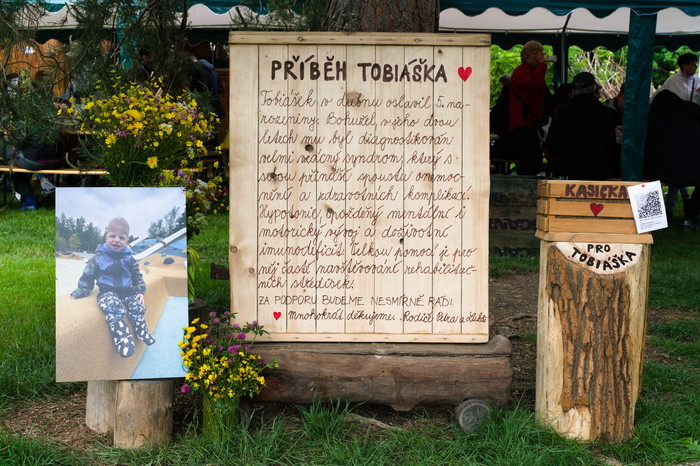 PŘÍBĚH TOBIÁŠKA
Tobiášek v dubnu oslavil 5. na-
rozeniny. Bohužel v jeho dvou
letech mu byl diagnostikován
velmi vzácný syndrom, který s
sebou přináší spoustu onemoc-
nění a zdravotních komplikací.
Hypotonie, opožděný mentální i
motorický vývoj a doživotní
imunodeficit. Velkou pomocí je pro
něj časté navštěvování rehabilitač-
ních středisek.
ZA PODPORU BUDEME NESMÍRNĚ RÁDI.
Mnohokrát děkujeme. Rodiče Petra a
KASIČKA
PRO
TOBIÁŠKA